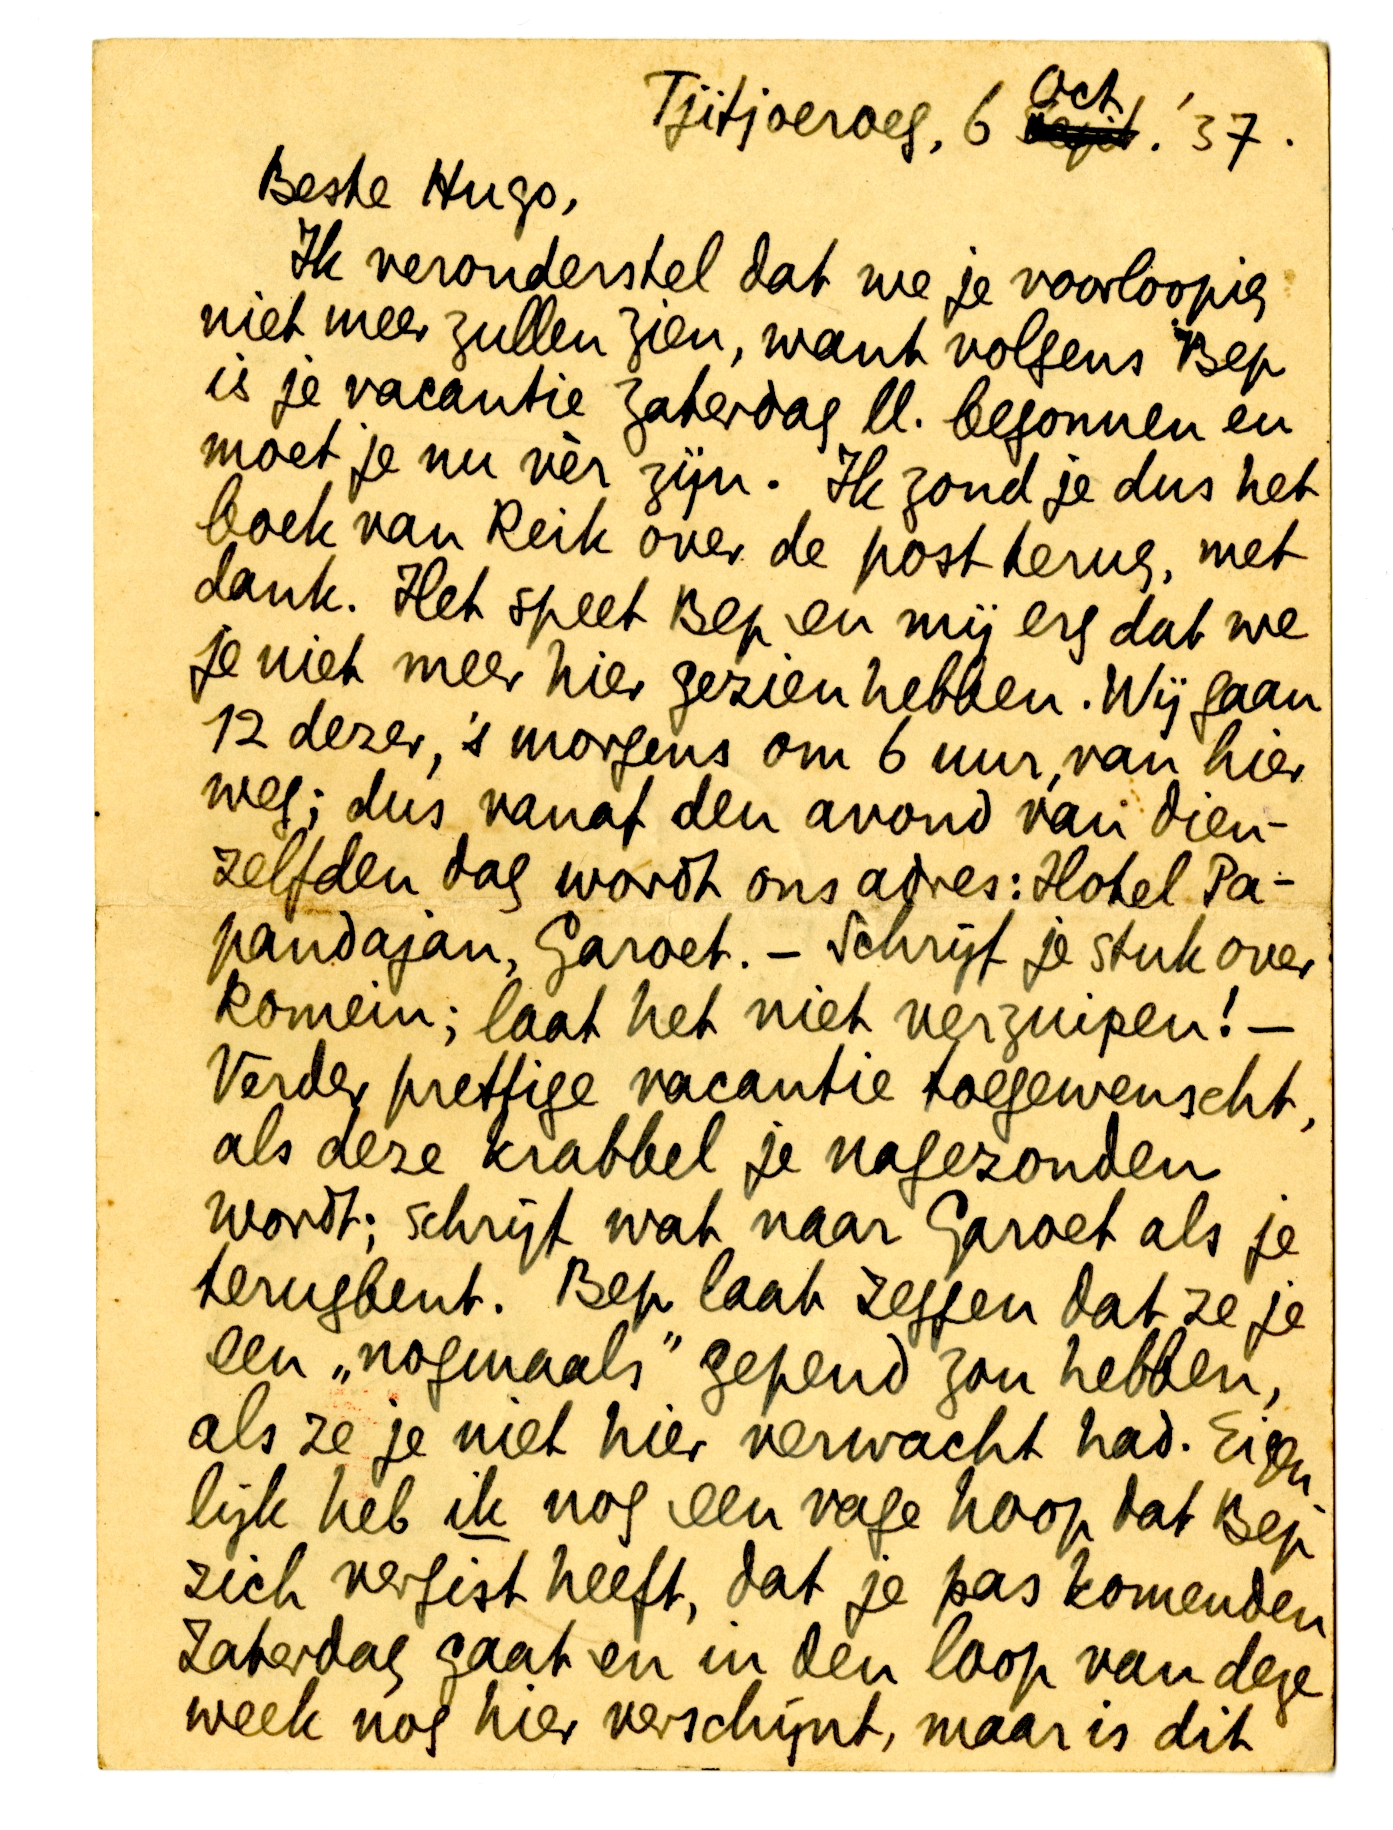 Tjitjoeroeg, 6 Oct. '37.
Beste Hugo,
Ik veronderstel dat we je voorloopig
niet meer zullen zien, want volgens Bep
is je vacantie Zaterdag ll. begonnen en
moet je nu vèr zijn. Ik zond je dus het
boek van Reik over de post terug, met
dank. Het speet Bep en mij erg dat we
je niet meer hier gezien hebben. Wij gaan
12 dezer, 's morgens om 6 uur, van hier
weg; dus vanaf den avond van dien-
zelfden dag wordt ons adres: Hotel Pa-
pandajan, Garoet. – Schrijf je stuk over
Romein; laat het niet verzuipen! –
Verder prettige vacantie toegewenscht,
als deze krabbel je nagezonden
wordt; schrijf wat naar Garoet als je
terugbent. Bep laat zeggen dat ze je
een „nogmaals” gepend zou hebben,
als ze je niet hier verwacht had. Eigen
lijk heb ik nog een vage hoop dat Bep
zich vergist heeft, dat je pas komenden
Zaterdag gaat en in den loop van deze
week nog hier verschijnt, maar is dit